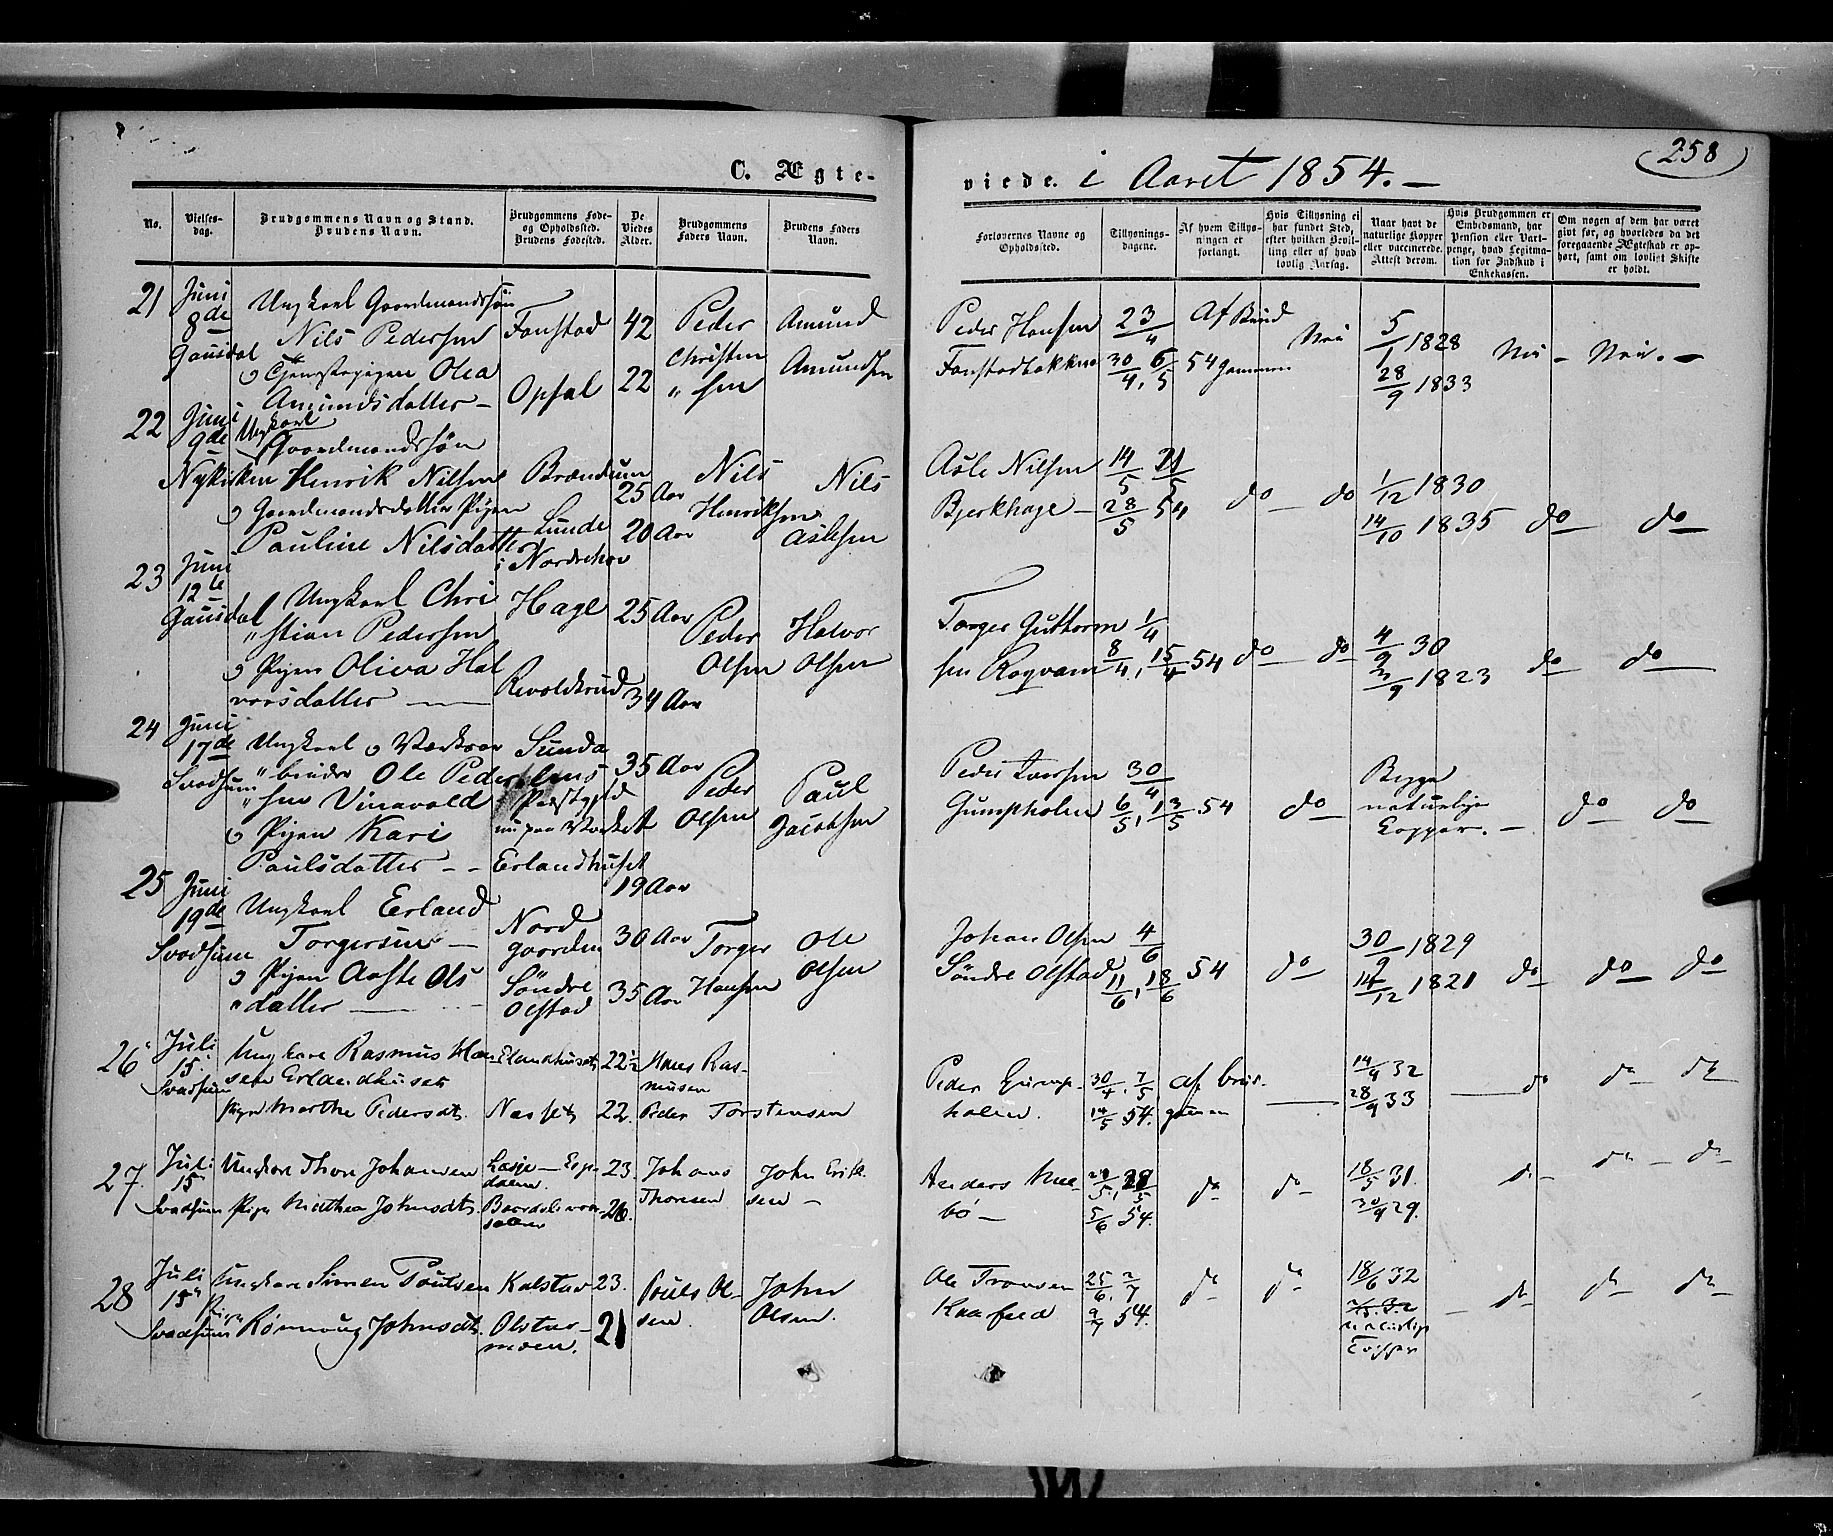 258
C. Ægte-
viede. i Aaret 1854. —
No.
Vielses-
dag.
Brudgommens Navn og Stand.
Brudens Navn.
Brudgommens Føde-
og Opholdssted.
Brudens Fødested.
De
Viedes
Alder.
Brudgommens
Faders Navn.
Brudens Faders
Navn.
Forlovernes Navne og
Opholdssted.
Tillysnings-
dagene.
Af hvem Tillys-
ningen er
forlangt.
Hvis Tillysning ei
har fundet Sted,
efter hvilken Bevil-
ling eller af hvad
lovlig Aarsag.
Naar havt de
naturlige Kopper
eller vaccinerede.
Attest derom.
Hvis Brudgommen er
Enkedsmand, har
Pension eller Vart-
penge, hvad Legitima-
tion for Indskud i
Enkekassen.
Om nogen af dem har været
givt før, og hvorledes da det
foregaaende Ægteskab er op-
hørt, samt om lovligt Skifte
er holdt.
21 Juni
8de
Gausdal
Ungkarl Gaardmandssøn
Nils Pedersen
o Tjenestepigen Olea
Amundsdatter —
Fonstad 42
Opsal 22
Peder
Christen
„ sen
Amund
Amundsen
Peder Hansen
Fonstadbakken
23/4
30/4, 6/5 54
Af Brud
gommen
Nei
5/1 1828
28/9 1833
Nei — Nei. —
22 Juni
9de
Nykirken
Ungkarl
Gaardmandssøn
Henrik Nilsen
o Gaardmandsdatter Pigen
Pauline Nilsdatter
25 Aar
Lunde 20 Aar
i Nordrehov
Nils
Henriksen
Nils
Aslesen
Asle Nilsen
Bjerkhage —
14/5 21/5
28/5 54
do — do
1/12 1830
14/10 1835
do — do
23 Juni
12te
Gausdal
Ungkarl Chri
„ stian Pedersen
o Pigen Oliva Hal
vorsdatter —
Hage 25 Aar
34 Aar
Peder
Olsen
Halvor
Olsen
Torger Guttorm
sen Rogvam
1/4
8/4, 15/4 54
do — do
4/9 30
3/9 1823
do — do
24 Juni
17de
Svadsum
Ungkarl o
„ binder Ole Peder
„ sen
o Pigen Kari
Paulsdatter — —
Præstegjeld
nu paa
Erlandhuset
35 Aar
19 Aar
Peder
Olsen
Paul
Jacobsen
Peder Iversen
Gumpholen
30/4
6/5, 13/5 54
do
Begge
naturlige
Copper. —
do do
25 Juni
19de
Svadsum
Ungkarl Erland
Torgersen —
o Pigen Aaste Ols
„ datter —
Nord
gaarden 30 Aar
Søndre
Olstad 35 Aar
Torger
Hansen
Ole
Olsen
Johan Olsen
Søndre Olstad
4/6
11/6, 18/6 54
do
30/9 1829
14/12 1821
do do do
26 Juli
15.
Svadsum
Ungkarl Rasmus Han
sen Erlandhuset
Pige Marthe Pedersdt.
Elandhuset 22½
Næsset 22.
Hans Ras-
musen
Peder Torstensen
Peder Gump-
holen.
30/4. 7/5
14/5 54.
af brud-
gommen
14/9 32
28/9 33
do do do
27. Juli
15
Svadsum
Ungkarl Thore Johansen
Pige Mathea Johnsdt.
Lesje — 23.
26.
Johans
Thoresen
John Erik
sen —
Anders
bø —
5/6 54.
do do
18/5 31.
30/9 29.
do do do
28 Juli
15
Svadsum
Ungkarl Simen Poulsen
Pige Rønnoug Johnsdt.
Kalstad 23.
Olstad-
moen. 21
Pouls Ol-
sen.
John
Olsen.
Ole Tronsen
25/6. 2/7
9/7 54.
do do
18/6 32
naturlige
Copper
do do do